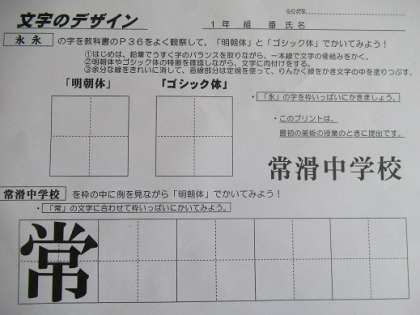 文字のデザイン
1年 組 番 氏名
永 永 の字を教科書のP36をよく観察して、「明朝体」と「ゴシック体」でかいてみよう!
①はじめは、鉛筆でうすく字のバランスを取りながら、一本線で文字の骨組みをかく。
②明朝体やゴシック体の特徴を確認しながら、文字に肉付けをする。
③余分な線をきれいに消して、直線部分は定規を使って、りんかく線をかき文字の中を塗りつぶす。
「明朝体」 「ゴシック体」
・「永」の字を枠いっぱいにかきましょう。
・このプリントは、
最初の美術の授業のときに提出です。
常滑中学校
常滑中学校 を枠の中に例を見ながら「明朝体」でかいてみよう!
・「常」の文字に合わせて枠いっぱいにかいてみよう。
常